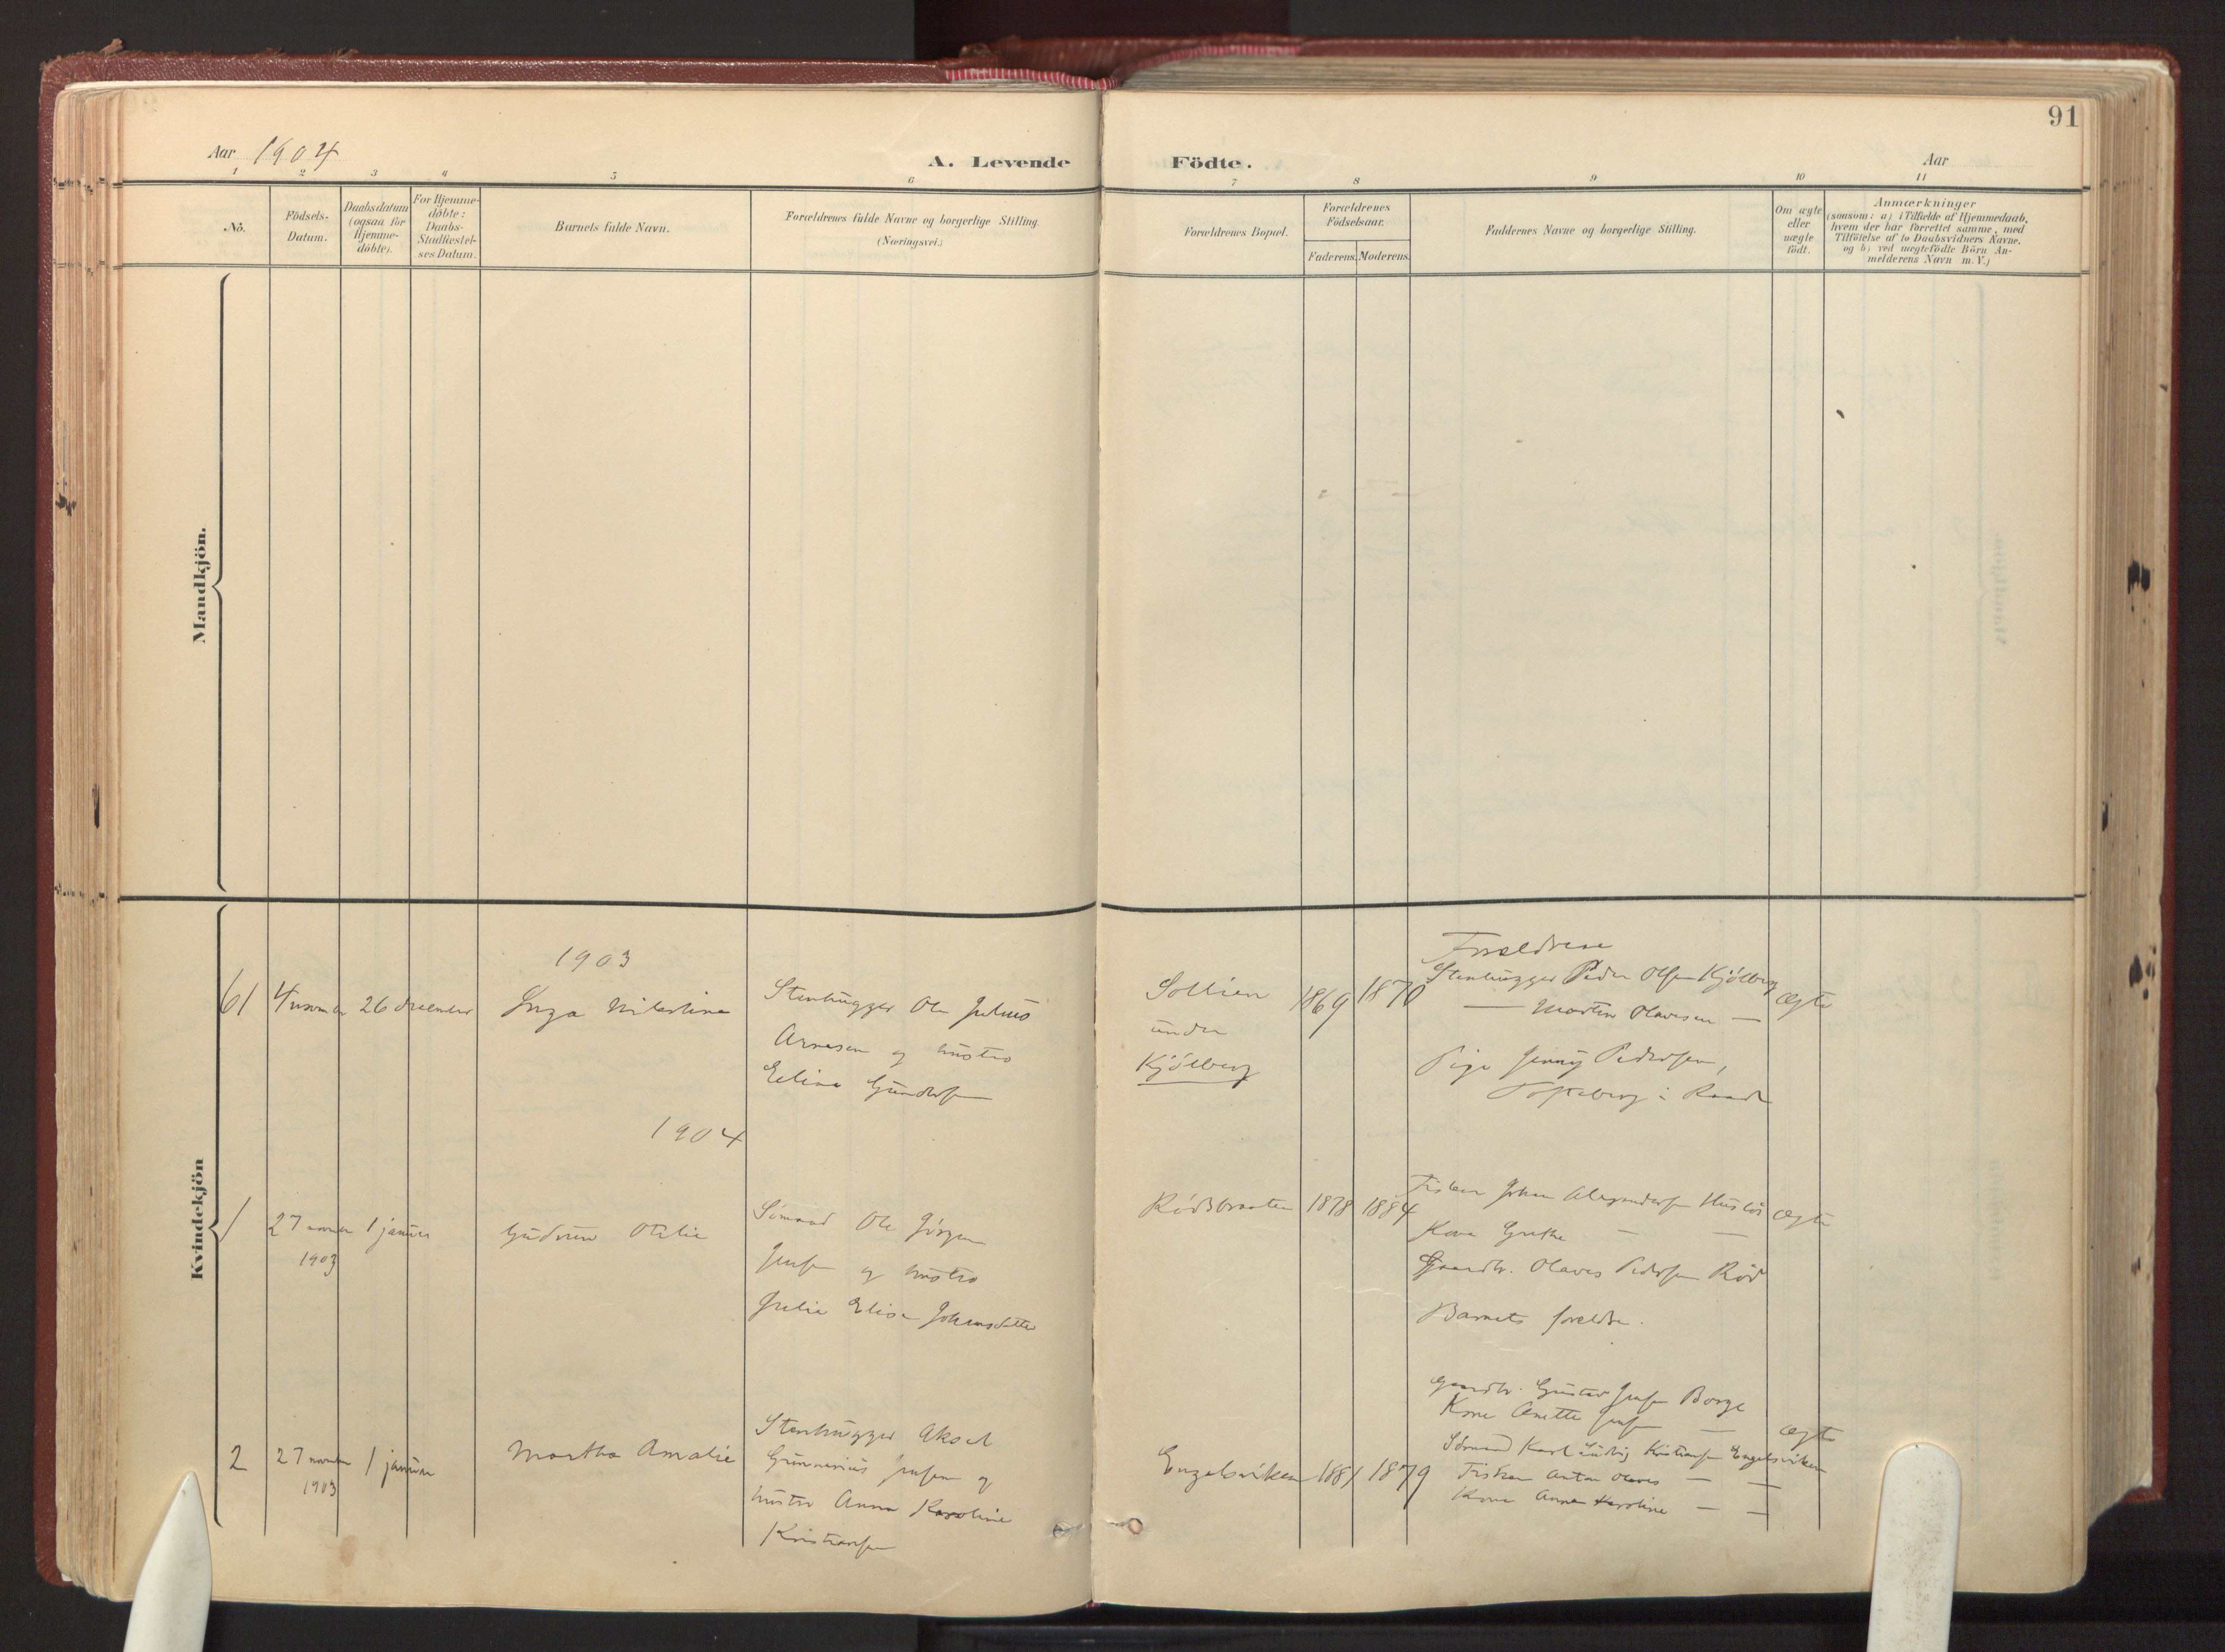 91
Aar 1904
A. Levende Födte.
Aar
1 2 3 4 5 6 7 8 9 10 11
Nö.
Födsels-
Datum.
Daabsdatum
(ogsaa för
Hjemme-
döbte).
For Hjemme-
döbte:
Daabs-
Stadfæstel-
ses Datum.
Barnets fulde Navn.
Forældrenes fulde Navne og borgerlige Stilling.
(Næringsvei.)
Forældrenes Bopæl.
Forældrenes
Födselsaar.
Faderens. Moderens.
Faddernes Navne og borgerlige Stilling.
Om ægte
eller
uægte
födt.
Anmærkninger
(saasom: a) i Tilfælde af Hjemmedaab,
hvem der har forrettet samme, med
Tilföielse af to Daabsvidners Navne.
og b) ved uægtefödte Börn An-
melderens Navn m. V.)
Mandkjön.
Kvindekjön
1903
61 26 december Inga
Stenhugger Ole Julius
Arnesen og hustro
Eeline Gundersen
Sollien
under
Kjölberg
1869 1870
Forældrene
Stenhugger Peder Olsen Kjölberg
— Martin Olavesen —
Pige Jenny Pedersen,
i Raade
Ægte
1904
1 27 novmber 1 januar
1903
Gudrun Otilie
Sömand Ole Jörgen
Jensen og hustro
Julie Elise Johansdatter
Rödsbraaten 1878 1884
Fisker Johan Alexandersen Huslös
Kone Grethe — —
Gaardbr. Olaves Pedersen Röd
Barnets forældre.
Ægte
2 27 novmber 1 januar
1903
Martha Amalie
Stenhugger Aksel
Gunnerius Jensen og
hustro Anna Karoline
Kristiansen
Engelsviken 1881 1879
Gaardbr. Gustav Jensen Borge
Kone Anette Jensen —
Sömand Karl Ludvig Kristiansen Engelsviken
Fisker Anton Olaves — —
Kone Anna Karoline — —
Ægte